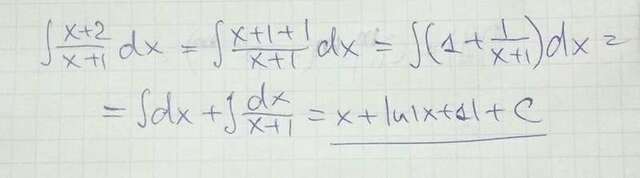 ∫ x+2/x+1 dx = ∫ x+1+1/x+1 dx = ∫(1+1/x+1)dx =
= ∫dx + ∫ dx/x+1 = x+ln|x+1|+C